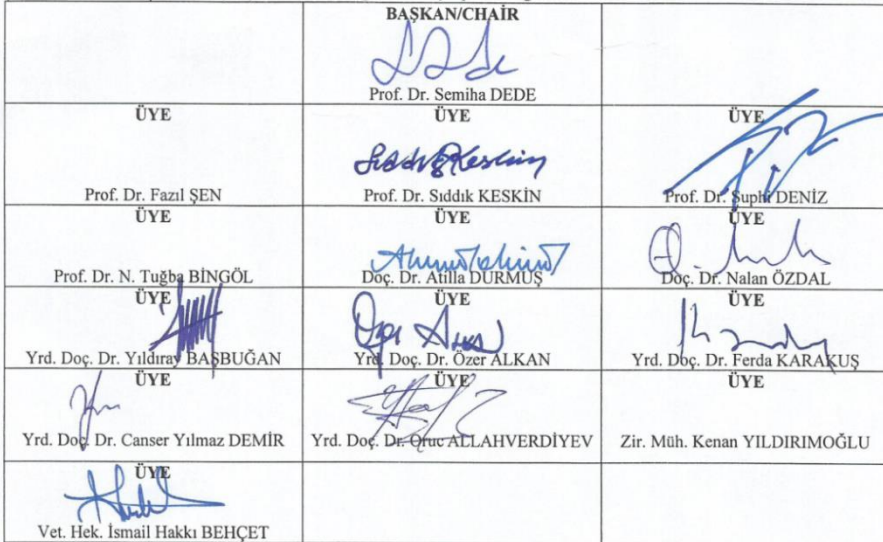 BAŞKAN/CHAİR
Prof. Dr. Semiha DEDE
ÜYE
Prof. Dr. Fazıl ŞEN
ÜYE
Sıddık Keskin
Prof. Dr. Sıddık KESKİN
ÜYE
Prof. Dr. Suphi DENİZ
ÜYE
Prof. Dr. N. Tuğba BİNGÖL
Doç. Dr. Atilla DURMUŞ
ÜYE
Doç. Dr. Nalan ÖZDAL
ÜYE
Yrd. Doç. Dr. Yıldıray BAŞBUĞAN
ÜYE
Yrd. Doç. Dr. Özer ALKAN
ÜYE
Yrd. Doç. Dr. Ferda KARAKUŞ
ÜYE
Yrd. Doç. Dr. Canser Yılmaz DEMİR
ÜYE
Yrd. Doç. Dr. Oruc ALLAHVERDİYEV
ÜYE
Zir. Müh. Kenan YILDIRIMOĞLU
ÜYE
Vet. Hek. İsmail Hakkı BEHÇET